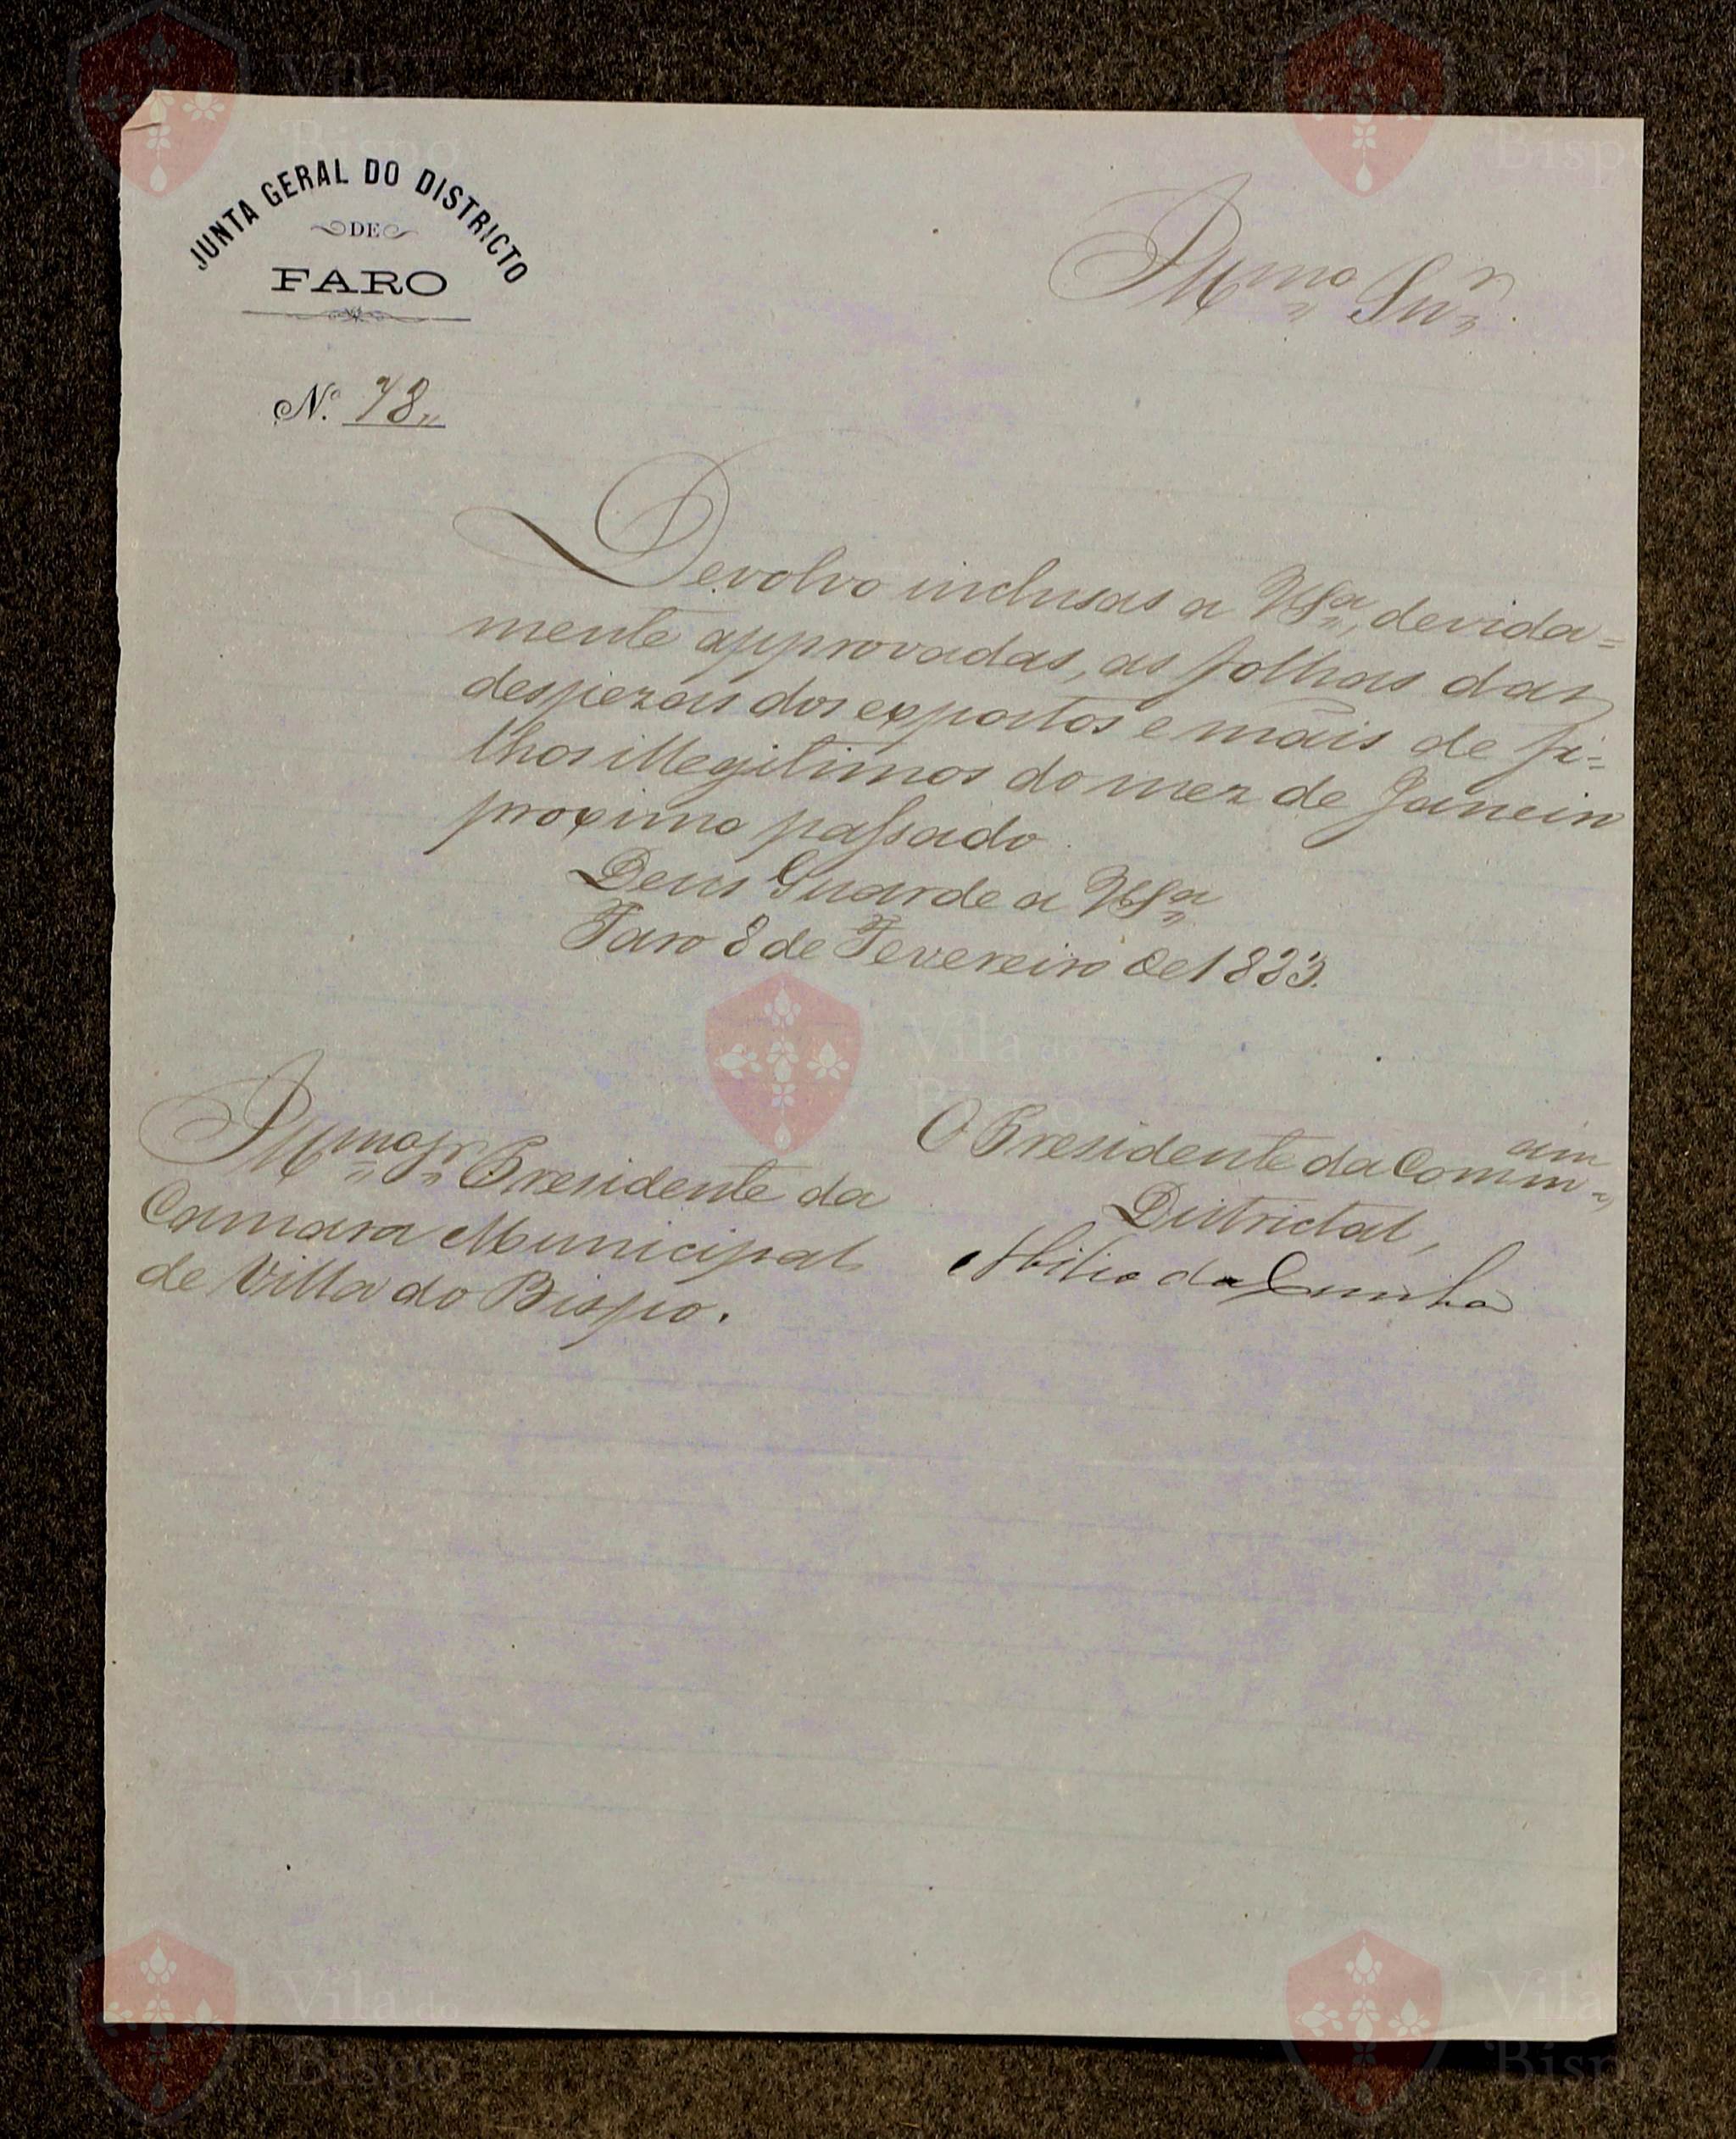 JUNTA GERAL DO DISTRICTO
DE
FARO
N.º 78,,
Illmo Snr
Devolvo inclusas a VSa, devida=
mente approvadas, as folhas das
despezas dos expostos e mãis de fi=
lhos illegitimos do mez de Janeiro
proximo passado.
Deus Guarde a VSa
Faro 8 de Fevereiro de 1883.
Illmo Sr Presidente da
Camara Municipal
de Villa do Bispo.
O Presidente da Commam
Districtal,
Abilio da Cunha
Vila do
Bispo